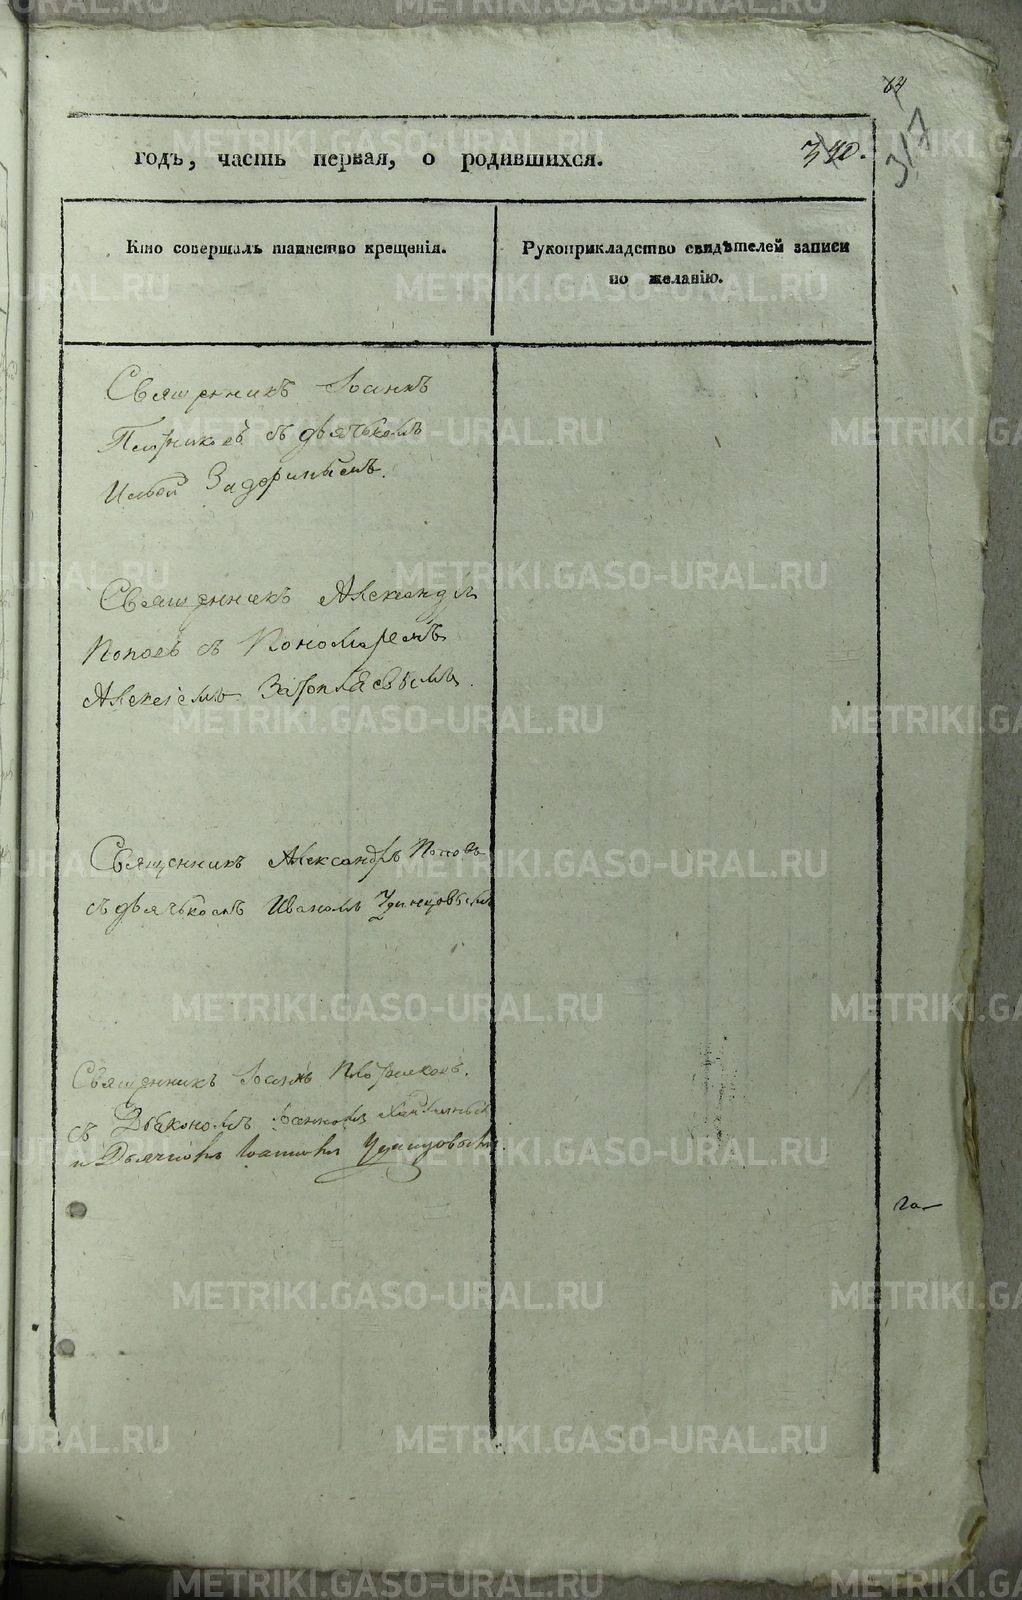 64
317
годъ, часть первая, о родившихся.
340.
Кто совершалъ таинство крещенія.
Рукоприкладство свидѣтелей записи
по желанію.
Священникъ Іоаннъ
Плотниковъ съ дьячькомъ
Ильей Задоринымъ.
Священникъ Александръ
Поповъ съ Пономаремъ
Алексіемъ
Священникъ Александръ Поповъ
съ дьячькомъ Иваномъ Удинцовымъ
Священникъ Іоаннъ Плотниковъ.
съ Дьякономъ Іоанномъ
и Дьячкомъ Іоанномъ Удинцовымъ.
METRIKI.GASO-URAL.RU